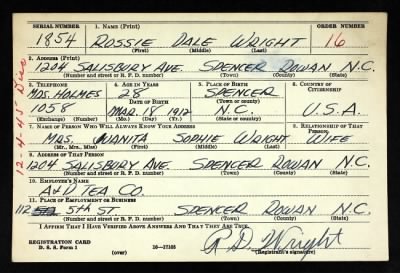 SERIAL NUMBER
1. NAME (Print)
ORDER NUMBER
1854
ROSSIE DALE WRIGHT
16
(First) (Middle) (Last)
2. ADDRESS (Print)
1204 SALISBURY AVE. SPENCER ROWAN N.C.
(Number and street or R. F. D. number) (Town) (County) (State)
3. TELEPHONE
4. AGE IN YEARS
5. PLACE OF BIRTH
6. COUNTRY OF CITIZENSHIP
MRS. HOLMES
28
SPENCER
DATE OF BIRTH
(Town or county)
1058
MAR. 18 1912
N.C.
U.S.A.
(Exchange) (Number)
(Mo.) (Day) (Yr.)
(State or country)
7. NAME OF PERSON WHO WILL ALWAYS KNOW YOUR ADDRESS
8. RELATIONSHIP OF THAT PERSON
MRS. WANITA SOPHIE WRIGHT WIFE
(Mr., Mrs., Miss) (First) (Middle) (Last)
9. ADDRESS OF THAT PERSON
1204 SALISBURY AVE. SPENCER ROWAN N.C.
(Number and street or R. F. D. number) (Town) (County) (State)
10. EMPLOYER'S NAME
A & P TEA CO.
11. PLACE OF EMPLOYMENT OR BUSINESS
112 5TH ST SPENCER ROWAN N.C.
(Number and street or R. F. D. number) (Town) (County) (State)
I AFFIRM THAT I HAVE VERIFIED ABOVE ANSWERS AND THAT THEY ARE TRUE.
REGISTRATION CARD
D. S. S. Form 1
(over)
16-17105
R. D. Wright
(Registrant's signature)
12-4-45